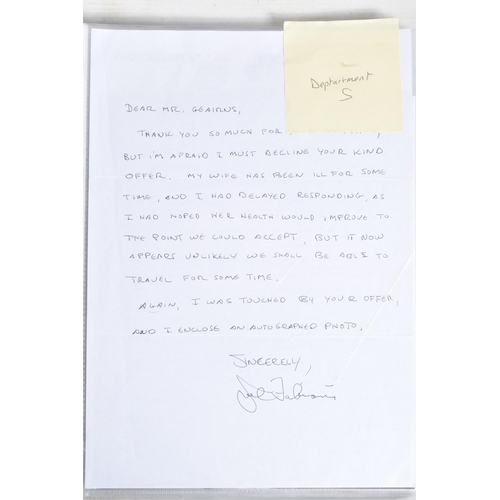 Deptartment
S
DEAR MR. GEAIRNS,
THANK YOU SO MUCH FOR
BUT I'M AFRAID I MUST DECLINE YOUR KIND
OFFER. MY WIFE HAS BEEN ILL FOR SOME
TIME, AND I HAD DELAYED RESPONDING, AS
I HAD HOPED HER HEALTH WOULD IMPROVE TO
THE POINT WE COULD ACCEPT, BUT IT NOW
APPEARS UNLIKELY WE SHALL BE ABLE TO
TRAVEL FOR SOME TIME.
AGAIN, I WAS TOUCHED BY YOUR OFFER,
AND I ENCLOSE AN AUTOGRAPHED PHOTO.
SINCERELY,
Joel Fabiani